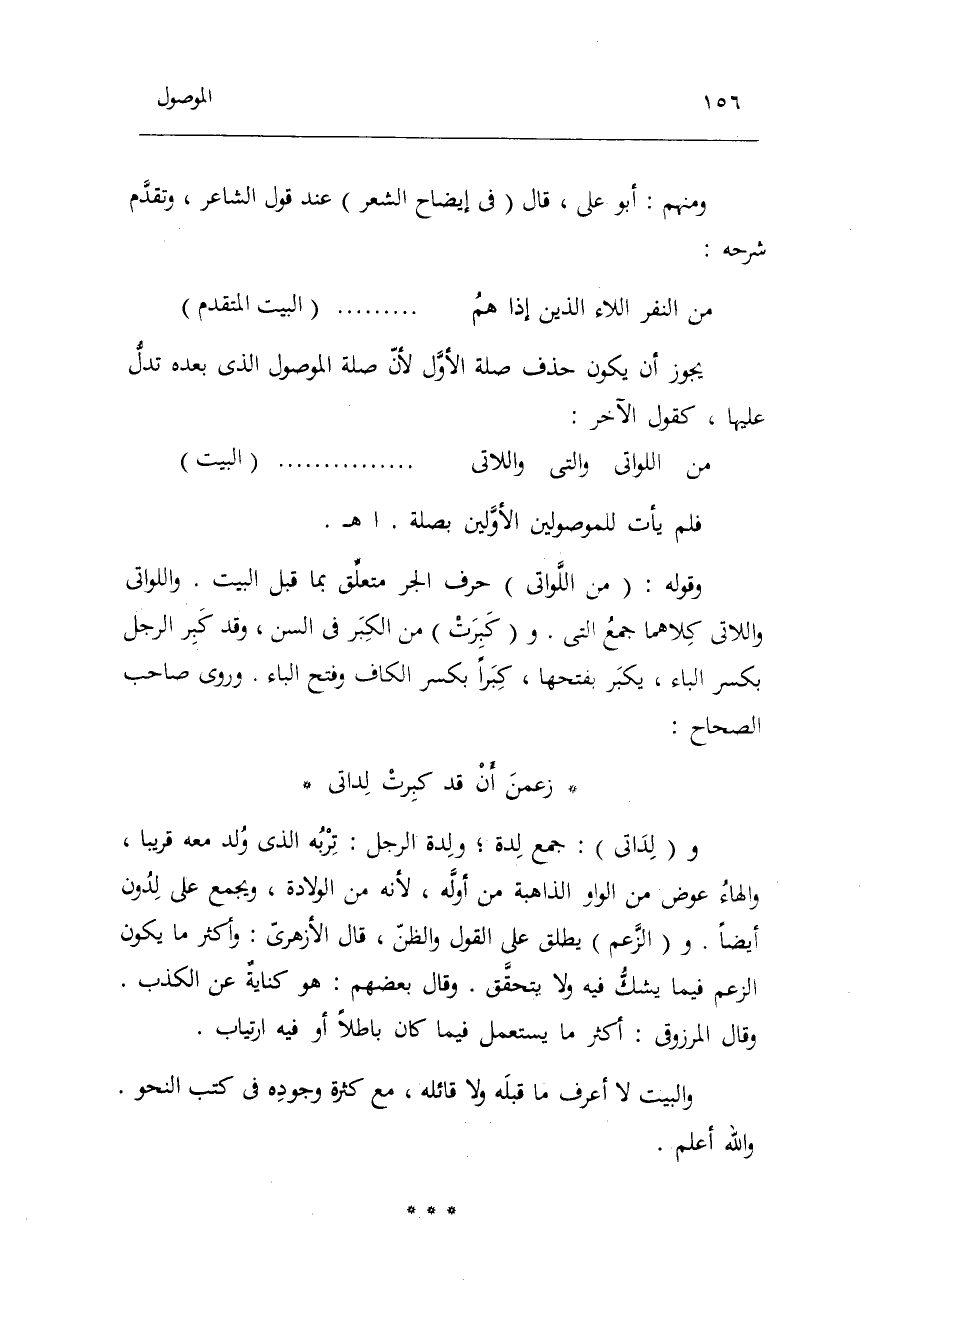 ١٥٦ الموصول
ومنهم : أبو على ، قال ( فى إيضاح الشعر ) عند قول الشاعر ، وتقدَّم
شرحه :
من النفر اللاء الذين إذا همُ ......... ( البيت المتقدم )
يجوز أن يكون حذف صلة الأوَّل لأنّ صلة الموصول الذى بعده تدلُّ
عليها ، كقول الآخر :
من اللواتى والتى واللاتى ............... ( البيت )
فلم يأت للموصولين الأوَّلين بصلة . ا هـ .
وقوله : ( من اللَّواتى ) حرف الجر متعلِّق بما قبل البيت . واللواتى
واللاتى كِلاهما جمعُ التى . و ( كَبِرَتْ ) من الكِبَر فى السن ، وقد كَبِر الرجل
بكسر الباء ، يكبَر بفتحها ، كِبَراً بكسر الكاف وفتح الباء . وروى صاحب
الصحاح :
* زعمنَ أَنْ قد كبِرتْ لِداتى *
و ( لِدَاتى ) : جمع لِدة ؛ ولِدة الرجل : تِرْبُه الذى وُلد معه قريبا ،
والهاءُ عوض من الواو الذاهبة من أولَّه ، لأنه من الولادة ، ويجمع على لِدُون
أيضاً . و ( الزَّعم ) يطلق على القول والظنّ ، قال الأزهرىّ : وأكثر ما يكون
الزعم فيما يشكُّ فيه ولا يتحقَّق . وقال بعضهم : هو كنايةٌ عن الكذب .
وقال المرزوقى : أكثر ما يستعمل فيما كان باطلاً أو فيه ارتياب .
والبيت لا أعرف ما قبلَه ولا قائله ، مع كثرة وجودِه فى كتب النحو .
والله أعلم .
* * *